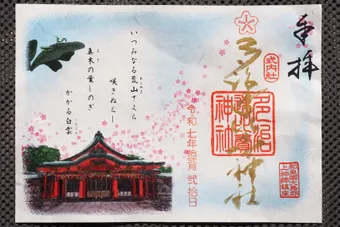 奉拝
式内社
多治速比売神社
いつみなる荒山さくら
咲きぬらし
真木の葉しのぎ
かかる白雲
令和七年 弐拾日